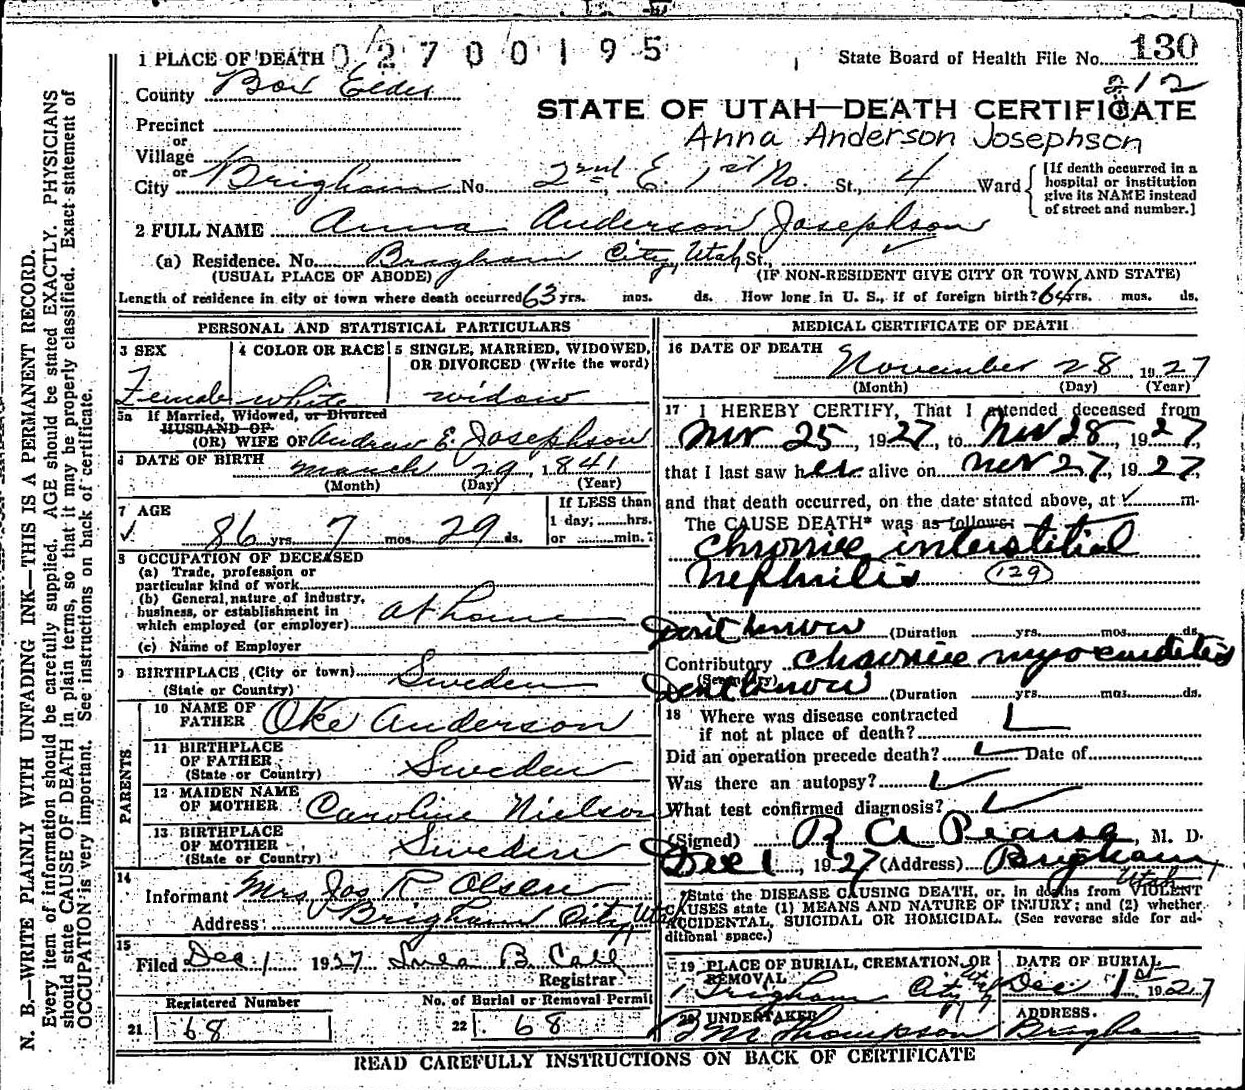 1 PLACE OF DEATH 02700195 State Board of Health File No. 130
County Box Elder 212
STATE OF UTAH—DEATH CERTIFICATE
Precinct
Anna Anderson Josephson
or
Village
or
City Brigham No. 2nd E. 1st No. St., 4 Ward [If death occurred in a hospital or institution give its NAME instead of street and number.]
2 FULL NAME Anna Anderson Josephson
(a) Residence. No. Brigham City, Utah St.,
(USUAL PLACE OF ABODE) (IF NON-RESIDENT GIVE CITY OR TOWN AND STATE)
Length of residence in city or town where death occurred 63 yrs. mos. ds. How long in U. S., if of foreign birth? 64 yrs. mos. ds.
PERSONAL AND STATISTICAL PARTICULARS
3 SEX 4 COLOR OR RACE 5 SINGLE, MARRIED, WIDOWED, OR DIVORCED (Write the word)
Female white widow
5a If Married, Widowed, or Divorced
HUSBAND OF
(OR) WIFE OF Andrew E. Josephson
DATE OF BIRTH March 29, 1841
(Month) (Day) (Year)
7 AGE If LESS than
86 yrs. 7 mos. 29 ds. 1 day; hrs.
or min.
8 OCCUPATION OF DECEASED
(a) Trade, profession or
particular kind of work
(b) General nature of industry,
business, or establishment in
which employed (or employer) at home
(c) Name of Employer
9 BIRTHPLACE (City or town) Sweden
(State or Country)
PARENTS
10 NAME OF FATHER Oke Anderson
11 BIRTHPLACE OF FATHER Sweden
(State or Country)
12 MAIDEN NAME OF MOTHER Caroline Nielson
13 BIRTHPLACE OF MOTHER Sweden
(State or Country)
14 Informant Mrs Jos R Olsen
Address Brigham City, Utah
15 Filed Dec. 1 1927 B. Call
Registrar
Registered Number No. of Burial or Removal Permit
21 68 22 68
MEDICAL CERTIFICATE OF DEATH
16 DATE OF DEATH
November 28, 1927
(Month) (Day) (Year)
17 I HEREBY CERTIFY, That I attended deceased from
Nov 25, 1927, to Nov 28, 1927,
that I last saw her alive on Nov 27, 1927,
and that death occurred, on the date stated above, at m.
The CAUSE DEATH* was as follows:
Chronic interstitial
Nephritis 129
Don't know (Duration yrs. mos. ds.
Contributory Chronic myocarditis
(Secondary)
Don't know (Duration yrs. mos. ds.
18 Where was disease contracted
if not at place of death?
Did an operation precede death? Date of
Was there an autopsy?
What test confirmed diagnosis?
(Signed) R A Pearse M. D.
Dec 1, 1927 (Address) Brigham, Utah
*State the DISEASE CAUSING DEATH, or in deaths from VIOLENT
CAUSES state (1) MEANS AND NATURE OF INJURY; and (2) whether
ACCIDENTAL, SUICIDAL OR HOMICIDAL. (See reverse side for additional space.)
19 PLACE OF BURIAL, CREMATION OR REMOVAL DATE OF BURIAL
Brigham City Utah Dec 1st 1927
20 UNDERTAKER ADDRESS.
M. Thompson Brigham
READ CAREFULLY INSTRUCTIONS ON BACK OF CERTIFICATE
N. B.—WRITE PLAINLY WITH UNFADING INK—THIS IS A PERMANENT RECORD.
Every item of information should be carefully supplied. AGE should be stated EXACTLY. PHYSICIANS
should state CAUSE OF DEATH in plain terms, so that it may be properly classified. Exact statement of
OCCUPATION is very important. See instructions on back of certificate.